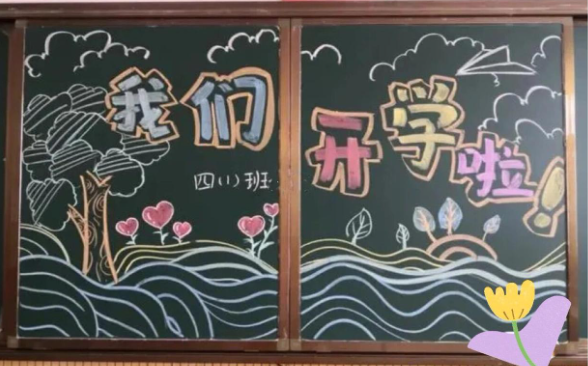 我们开学啦！
四（1）班